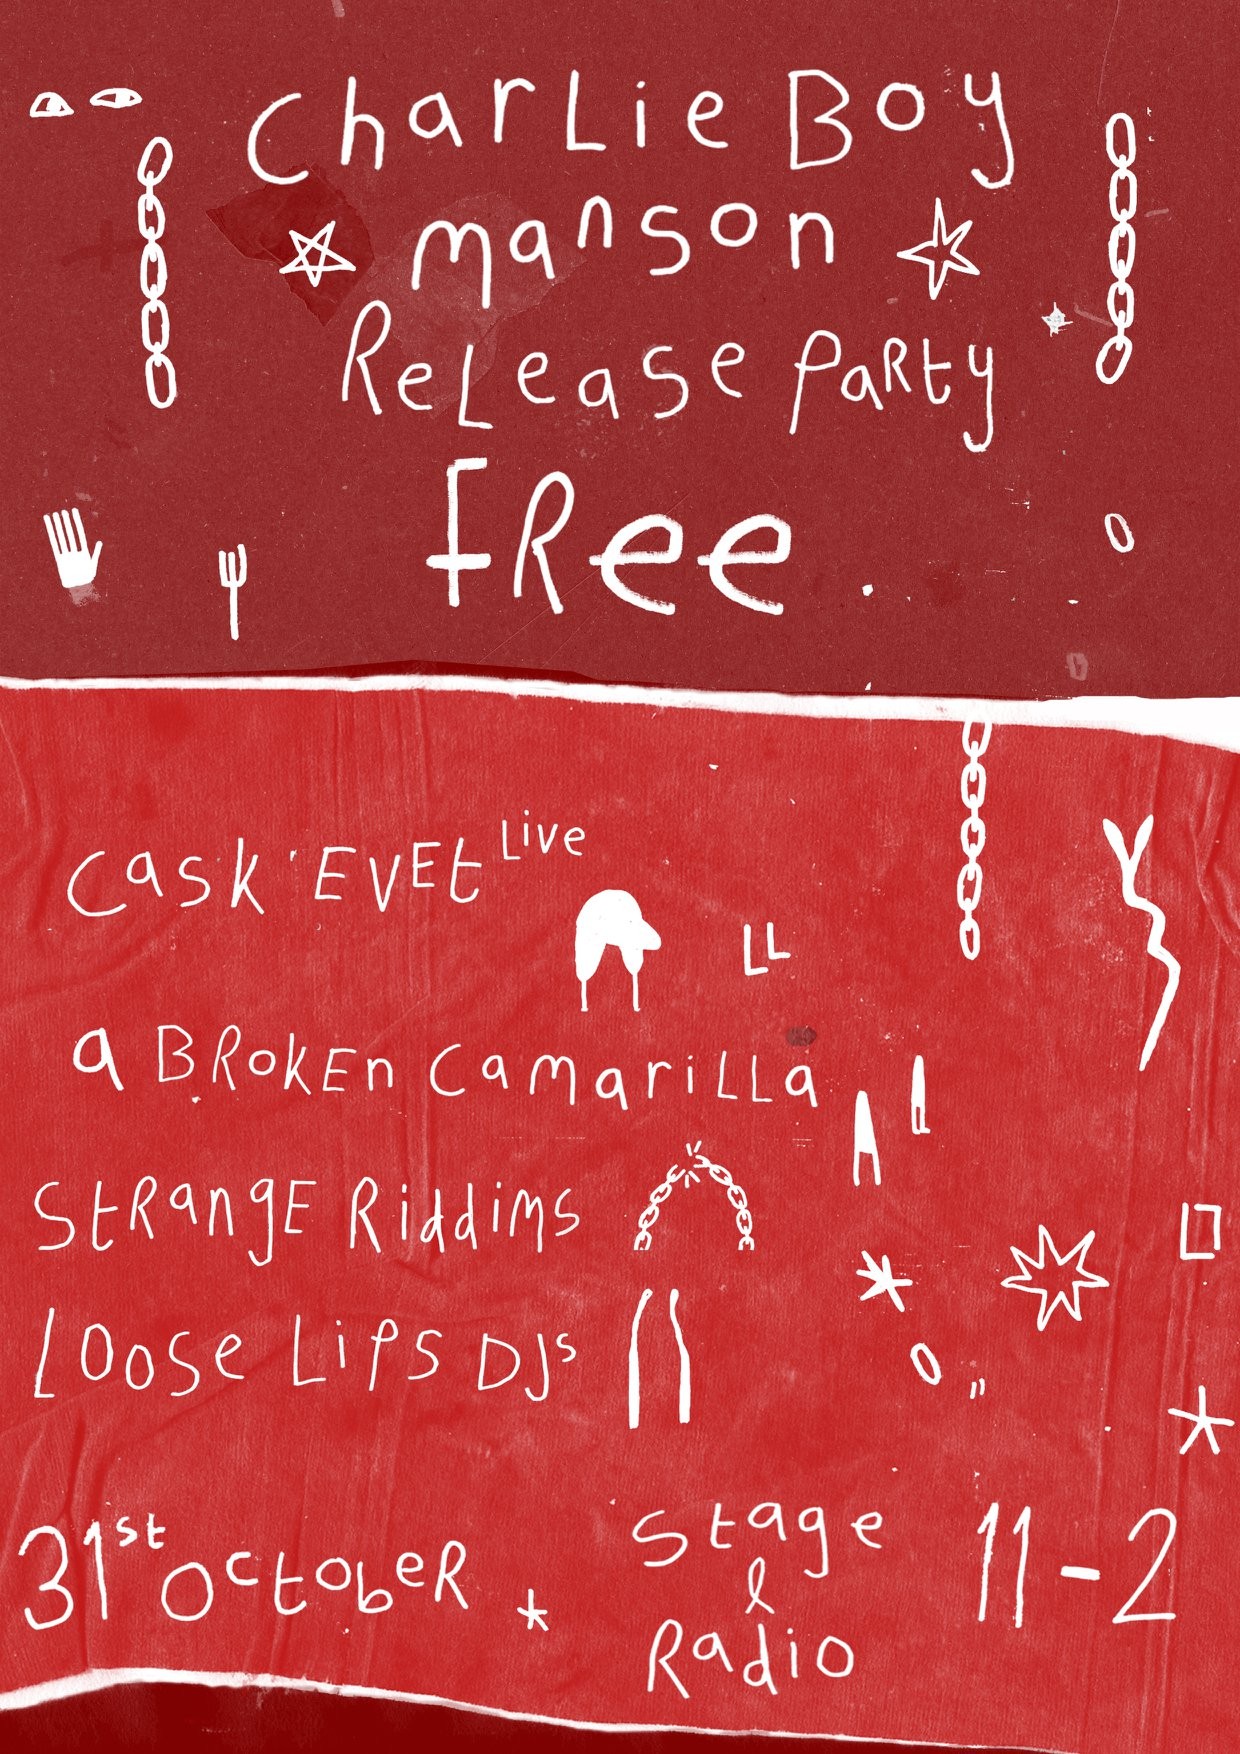 Charlie Boy
manson
Release Party
Free
Cask 'Evet Live
LL
a Broken Camarilla
Strange Riddims
Loose Lips DJs
31st October
Stage
&
Radio
11-2